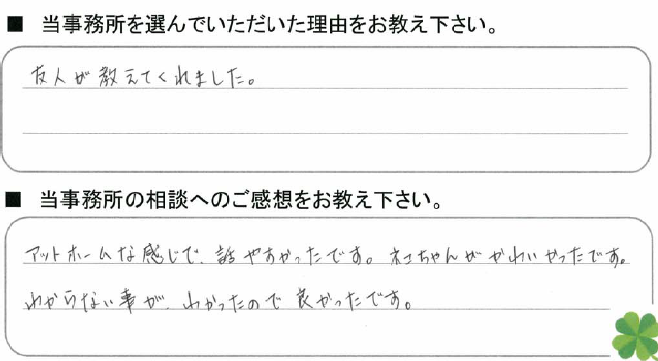 ■ 当事務所を選んでいただいた理由をお教え下さい。
友人が教えてくれました。
■ 当事務所の相談へのご感想をお教え下さい。
アットホームな感じで、話やすかったです。ネコちゃんがかわいかったです。
わからない事が、わかったので良かったです。